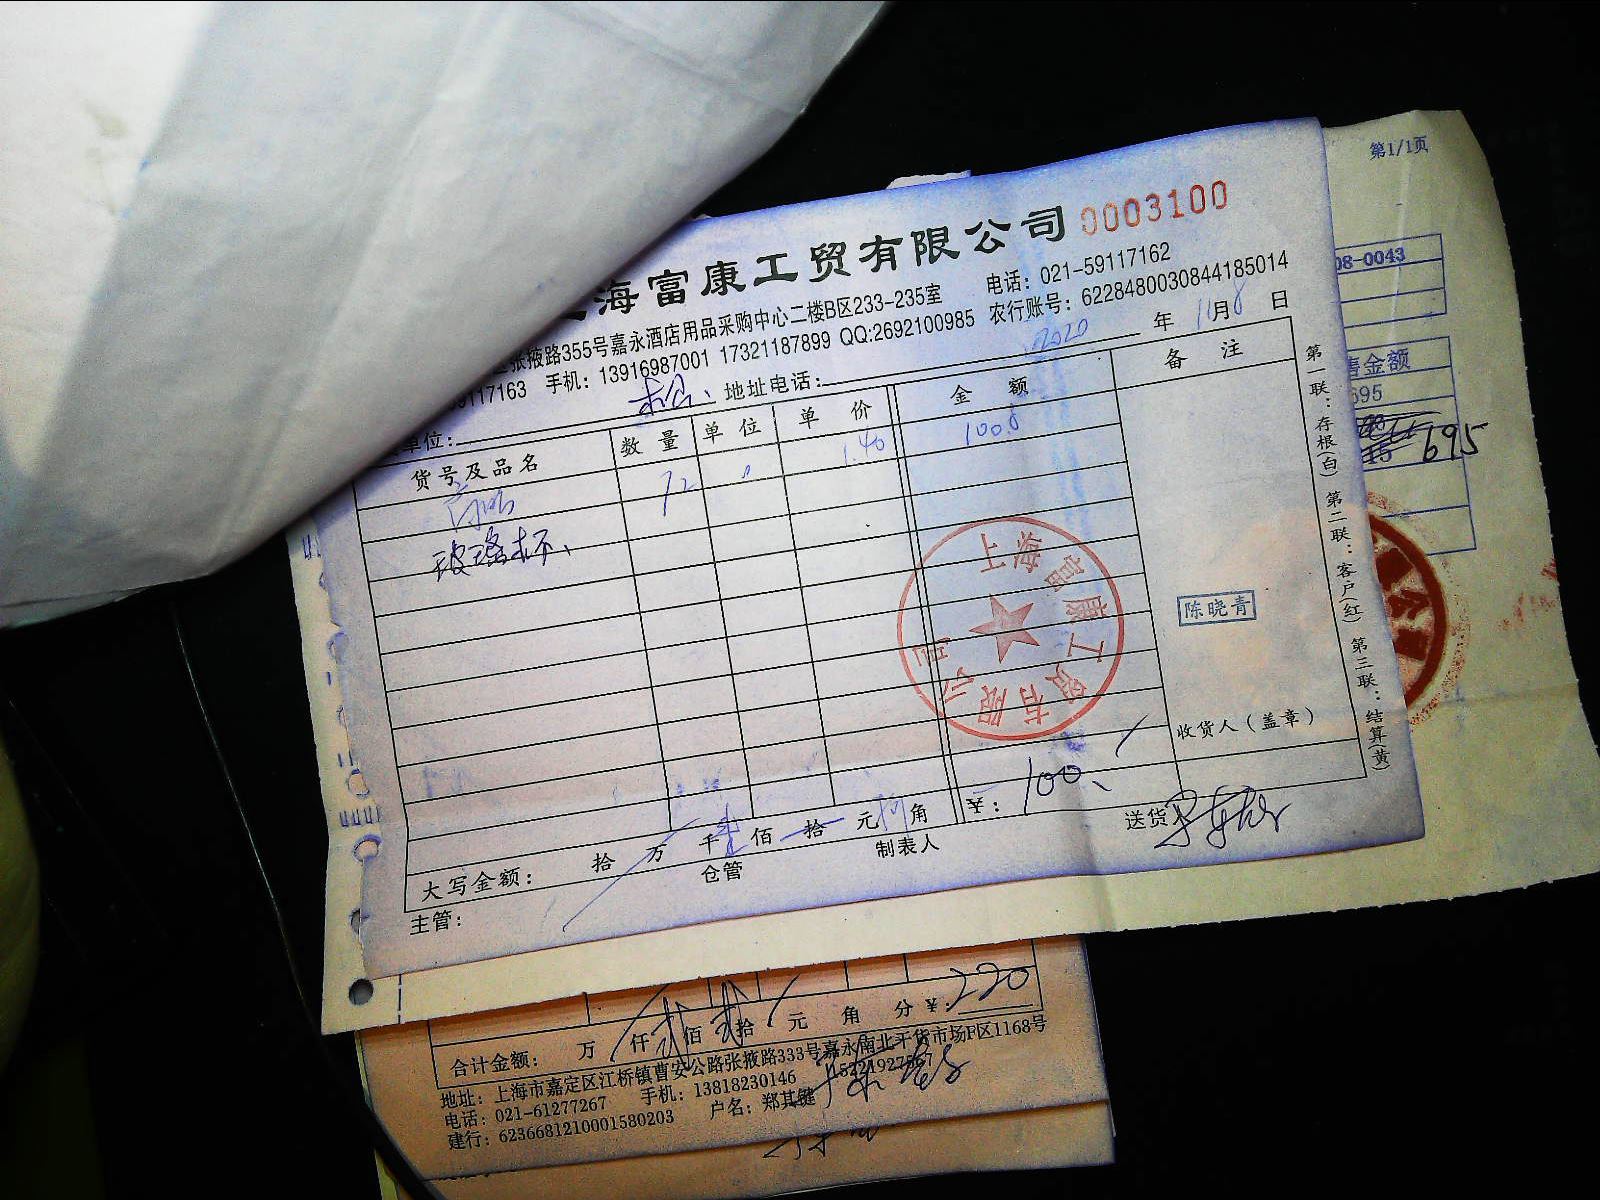 海富康工贸有限公司 0003100
张掖路355号嘉永酒店用品采购中心二楼B区233-235室 电话：021-59117162
117163 手机：13916987001 17321187899 QQ:2692100985 农行账号：6228480030844185014
2020 年 11月8日
单位： 地址电话：
货号及品名 数量 单位 单价 金额 备注
72 1.40 100.8
玻璃杯、
上海富康工贸有限公司
陈晓青
收货人（盖章）
大写金额： 拾 万 千 壹 佰 拾 元 角 ¥：100、
主管： 仓管 制表人 送货
第一联：存根(白) 第二联：客户(红) 第三联：结算(黄)
第1/1页
08-0043
售金额
695
695
合计金额： 万 仟 贰 佰 贰 拾 元 角 分 ¥：220
地址：上海市嘉定区江桥镇曹安公路张掖路333号嘉永南北干货市场F区1168号
电话：021-61277267 手机：13818230146
建行：6236681210001580203 户名：郑其健